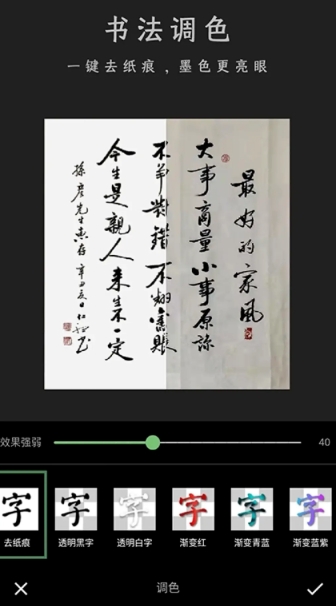 书法调色
一键去纸痕，墨色更亮眼
最好的家风
大事商量小事原谅
不争对错不翻旧账
今生是亲人来生不一定
效果强弱
40
去纸痕
透明黑字
透明白字
渐变红
渐变青蓝
渐变蓝紫
字
字
字
字
字
字
调色